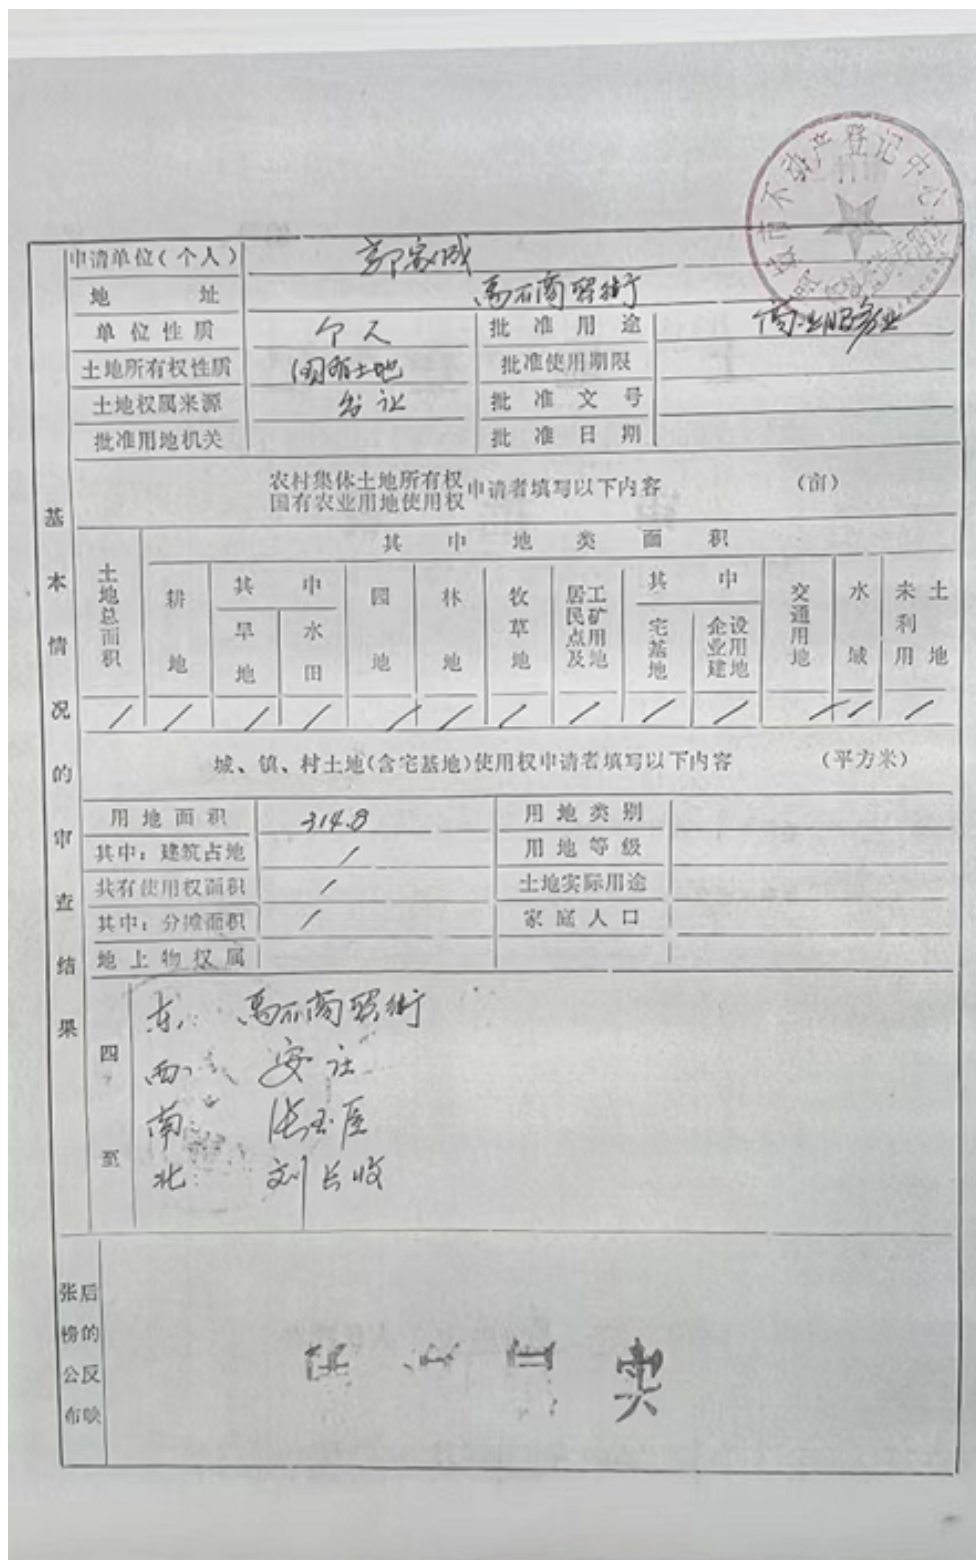 不动产登记中心
申请单位(个人) 郭家成
地址 高石商贸街
单位性质 个人 批准用途 商业服务业
土地所有权性质 国有土地 批准使用期限
土地权属来源 出让 批准文号
批准用地机关 批准日期
基本情况的审查结果
农村集体土地所有权
国有农业用地使用权 申请者填写以下内容 (亩)
土地总面积 其中地类面积
耕地 其中 园地 林地 牧草地 居民点及工矿用地 其中 交通用地 水域 未利用土地
旱地 水田 宅基地 企业建设用地
/ / / / / / / / / / / / /
城、镇、村土地(含宅基地)使用权申请者填写以下内容 (平方米)
用地面积 314.8 用地类别
其中:建筑占地 / 用地等级
共有使用权面积 / 土地实际用途
其中:分摊面积 / 家庭人口
地上物权属
四至
东: 高石商贸街
西: 安江
南: 张玉臣
北: 刘长收
张榜公布后的反映